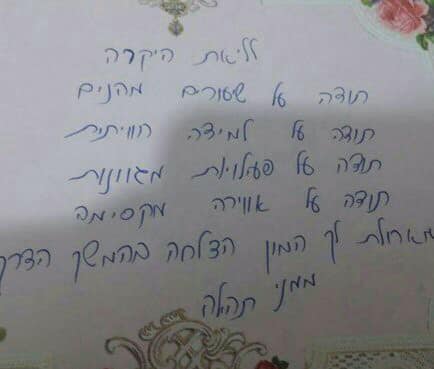 לליאת היקרה
תודה על שעורים מהנים
תודה על למידה חוויתית
תודה על פעילויות מגוונות
תודה על אווירה מקסימה
מאחלת לך המון הצלחה בהמשך הדרך
ממני תהילה